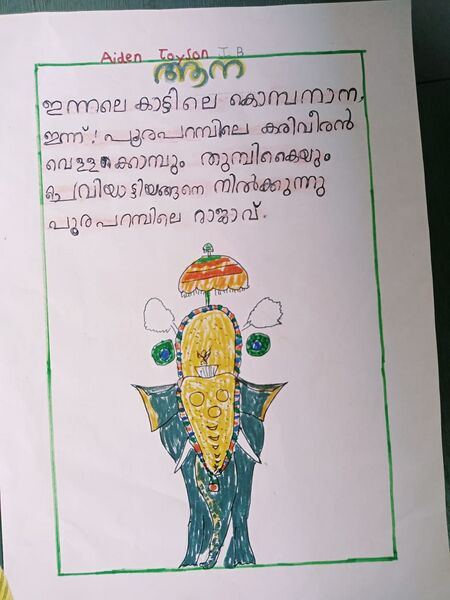 Aiden Jayson I B
ആന
ഇന്നലെ കാട്ടിലെ കൊമ്പനാന,
ഇന്ന്! പൂരപറമ്പിലെ കരിവീരൻ
വെള്ളക്കൊമ്പും തുമ്പികൈയും
ചെവിയാട്ടിയങ്ങനെ നിൽക്കുന്നു
പൂരപറമ്പിലെ രാജാവ്.